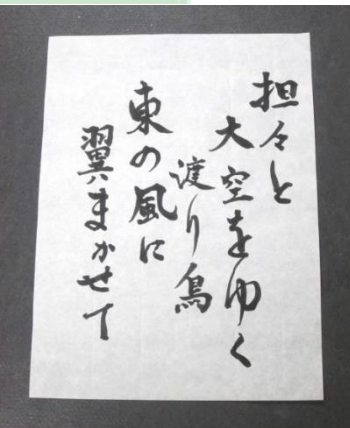 担々と
大空をゆく
渡り鳥
東の風に
翼まかせて